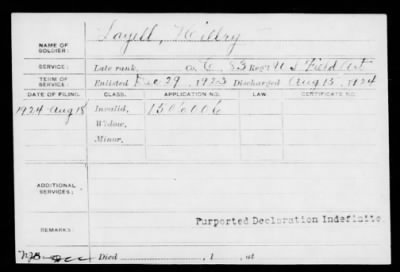 NAME OF SOLDIER: Layell, Wilbry
SERVICE: Late rank, Co. C, 83 Reg't U S Field Art
TERM OF SERVICE: Enlisted Dec 29, 1923 Discharged Aug 15, 1924
DATE OF FILING. CLASS. APPLICATION NO. LAW. CERTIFICATE NO.
1924 Aug 18 Invalid, 1506006
Widow,
Minor,
ADDITIONAL SERVICES:
Purported Declaration Indefinite
REMARKS:
Died , 1 , at